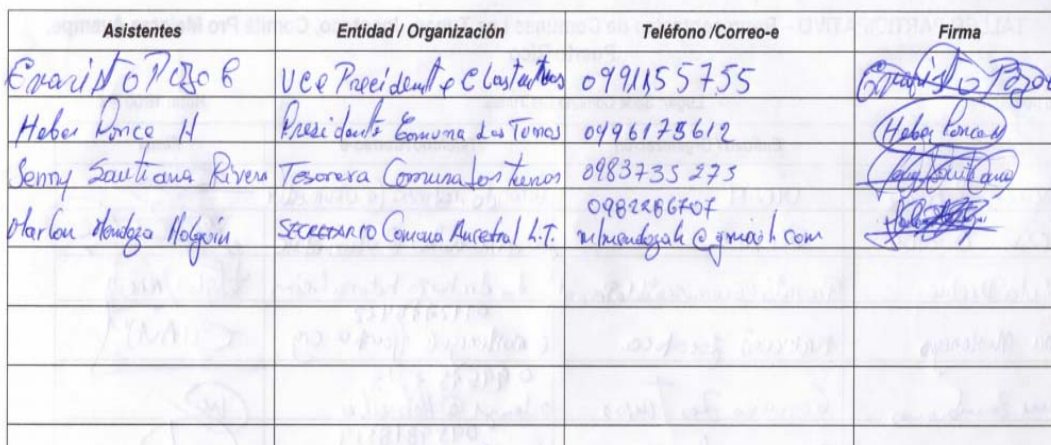 Asistentes Entidad / Organización Teléfono /Correo-e Firma
Evaristo Pozo B Vce Precidente C Los tunos 0991155755 Evaristo Pozo
Heber Ponce H Presidente Comuna Los Tunos 0996175612 Heber Ponce H
Senny Santiana Rivera Tesorera Comuna Los tunos 0983735273
0982286707
Marlon Mendoza Holguin SECRETARIO Comuna Ancestral L.T. mlmendozah@gmail.com